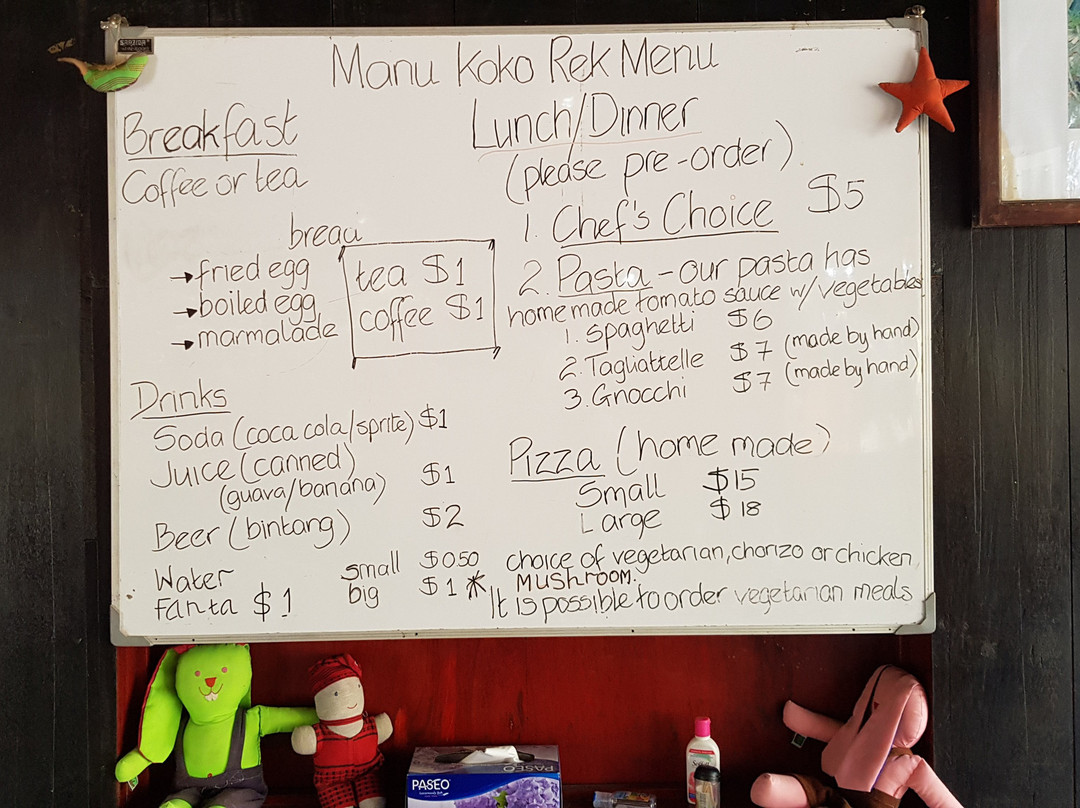 Manu Koko Rek Menu
Breakfast
Coffee or tea
bread
→ fried egg
→ boiled egg
→ marmalade
tea $1
coffee $1
Drinks
Soda (coca cola/sprite) $1
Juice (canned) $1
(guava/banana)
Beer (bintang) $2
Water small $0.50
big $1
Fanta $1
Lunch/Dinner
(please pre-order)
1. Chef's Choice $5
2. Pasta - our pasta has
home made tomato sauce w/ vegetables
1. Spaghetti $6
2. Tagliattelle $7 (made by hand)
3. Gnocchi $7 (made by hand)
Pizza (home made)
Small $15
Large $18
choice of vegetarian, chorizo or chicken,
* MUSHROOM.
It is possible to order vegetarian meals
PASEO
PASEO